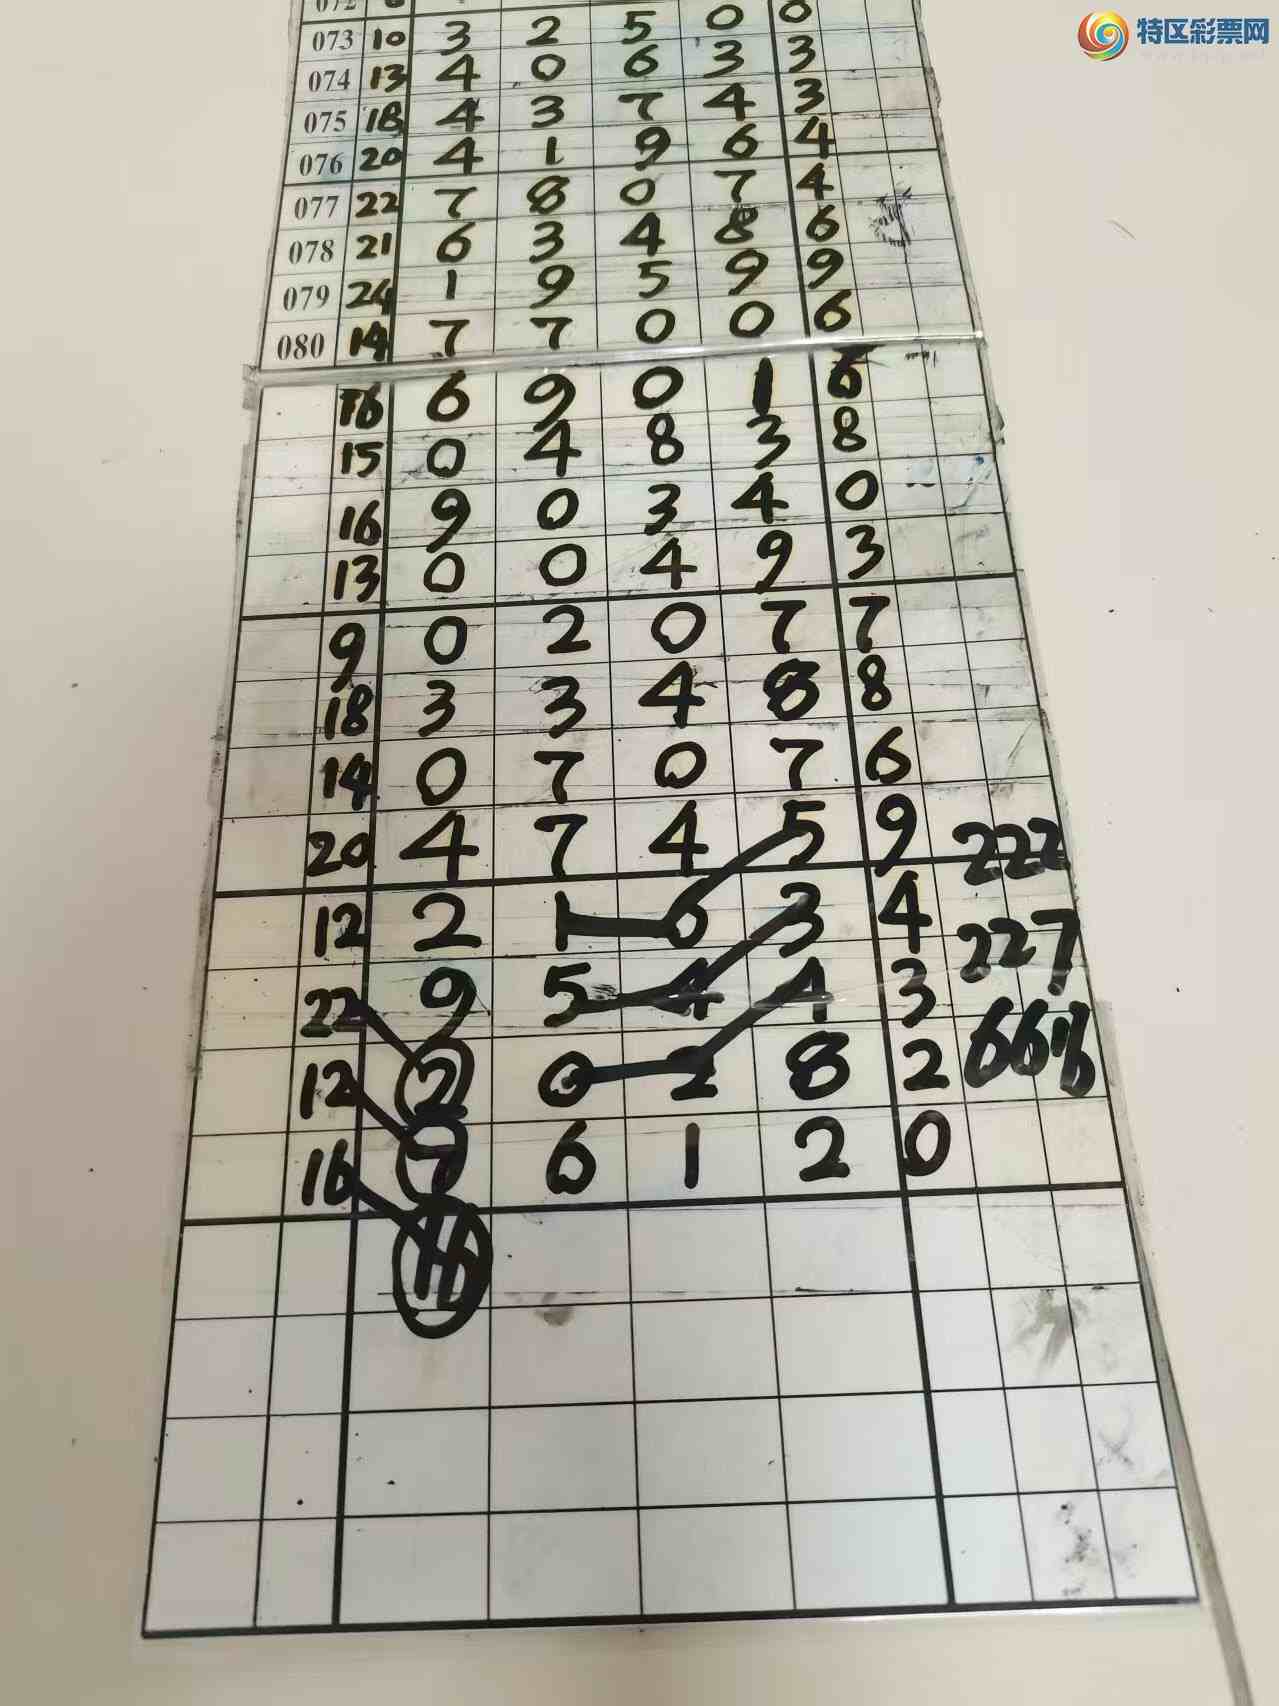 特区彩票网
073 10 3 2 5 0 0
074 13 4 0 6 3 3
075 18 4 3 7 4 3
076 20 4 1 9 6 4
077 22 7 8 0 7 4
078 21 6 3 4 8 6
079 24 1 9 5 9 9
080 14 7 7 0 0 6
16 6 9 0 1 6
15 0 4 8 3 8
16 9 0 3 4 0
13 0 0 4 9 3
9 0 2 0 7 7
18 3 3 4 8 8
14 0 7 0 7 6
20 4 7 4 5 9 222
12 2 1 6 3 4 227
22 9 5 4 4 3
12 2 0 2 8 2
16 7 6 1 2 0